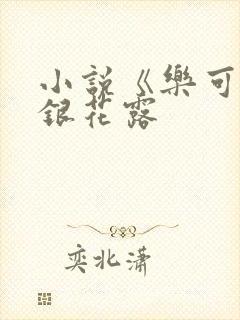 小說《樂可
銀花露
奕北瀟